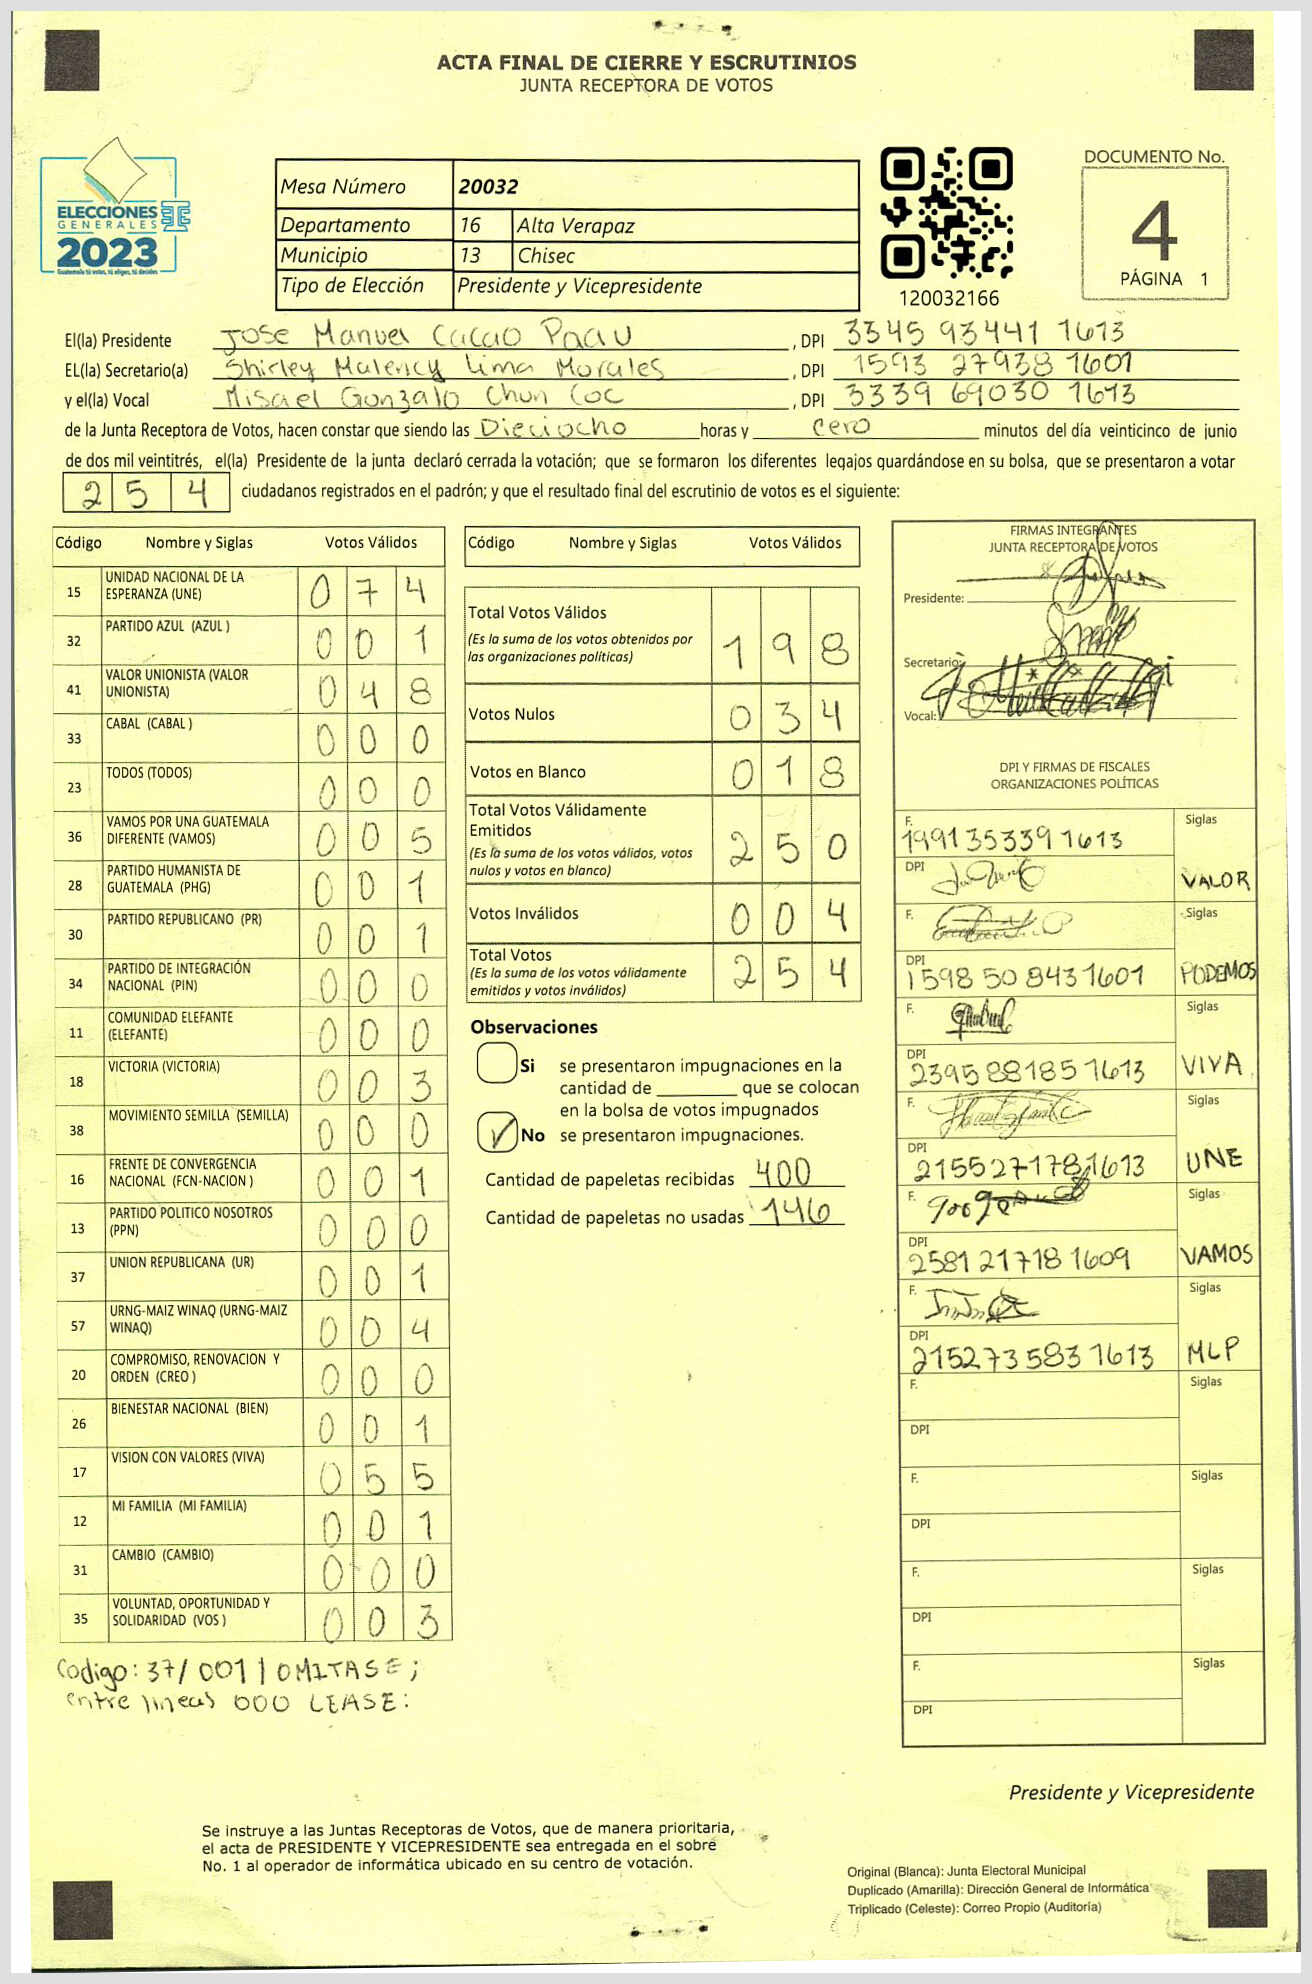 ACTA FINAL DE CIERRE Y ESCRUTINIOS
JUNTA RECEPTORA DE VOTOS
ELECCIONES
GENERALES
2023
Guatemala tú votas, tú eliges, tú decides
Mesa Número 20032
Departamento 16 Alta Verapaz
Municipio 13 Chisec
Tipo de Elección Presidente y Vicepresidente
120032166
DOCUMENTO No.
4
PÁGINA 1
El(la) Presidente Jose Manuel Cacao Paau, DPI 3345 93441 1613
EL(la) Secretario(a) Shirley Malency Lima Morales, DPI 1593 27938 1601
y el(la) Vocal Misael Gonzalo Chun Coc, DPI 3339 69030 1613
de la Junta Receptora de Votos, hacen constar que siendo las Dieciocho horas y cero minutos del día veinticinco de junio
de dos mil veintitrés, el(la) Presidente de la junta declaró cerrada la votación; que se formaron los diferentes legajos guardándose en su bolsa, que se presentaron a votar
2 5 4 ciudadanos registrados en el padrón; y que el resultado final del escrutinio de votos es el siguiente:
Código Nombre y Siglas Votos Válidos
15 UNIDAD NACIONAL DE LA ESPERANZA (UNE) 0 7 4
32 PARTIDO AZUL (AZUL ) 0 0 1
41 VALOR UNIONISTA (VALOR UNIONISTA) 0 4 8
33 CABAL (CABAL ) 0 0 0
23 TODOS (TODOS) 0 0 0
36 VAMOS POR UNA GUATEMALA DIFERENTE (VAMOS) 0 0 5
28 PARTIDO HUMANISTA DE GUATEMALA (PHG) 0 0 1
30 PARTIDO REPUBLICANO (PR) 0 0 1
34 PARTIDO DE INTEGRACIÓN NACIONAL (PIN) 0 0 0
11 COMUNIDAD ELEFANTE (ELEFANTE) 0 0 0
18 VICTORIA (VICTORIA) 0 0 3
38 MOVIMIENTO SEMILLA (SEMILLA) 0 0 0
16 FRENTE DE CONVERGENCIA NACIONAL (FCN-NACION ) 0 0 1
13 PARTIDO POLITICO NOSOTROS (PPN) 0 0 0
37 UNION REPUBLICANA (UR) 0 0 1
57 URNG-MAIZ WINAQ (URNG-MAIZ WINAQ) 0 0 4
20 COMPROMISO, RENOVACION Y ORDEN (CREO ) 0 0 0
26 BIENESTAR NACIONAL (BIEN) 0 0 1
17 VISION CON VALORES (VIVA) 0 5 5
12 MI FAMILIA (MI FAMILIA) 0 0 1
31 CAMBIO (CAMBIO) 0 0 0
35 VOLUNTAD, OPORTUNIDAD Y SOLIDARIDAD (VOS ) 0 0 3
Codigo: 37/ 001 | OMITASE;
entre lineas 000 LEASE:
Código Nombre y Siglas Votos Válidos
Total Votos Válidos 1 9 8
(Es la suma de los votos obtenidos por
las organizaciones políticas)
Votos Nulos 0 3 4
Votos en Blanco 0 1 8
Total Votos Válidamente
Emitidos 2 5 0
(Es la suma de los votos válidos, votos
nulos y votos en blanco)
Votos Inválidos 0 0 4
Total Votos 2 5 4
(Es la suma de los votos válidamente
emitidos y votos inválidos)
Observaciones
Si se presentaron impugnaciones en la
cantidad de ________ que se colocan
en la bolsa de votos impugnados
No se presentaron impugnaciones.
Cantidad de papeletas recibidas 400
Cantidad de papeletas no usadas 146
FIRMAS INTEGRANTES
JUNTA RECEPTORA DE VOTOS
Presidente:
Secretario:
Vocal:
DPI Y FIRMAS DE FISCALES
ORGANIZACIONES POLÍTICAS
F. 199135339 1613 Siglas
DPI VALOR
F. Siglas
DPI 1598 50 843 1601 PODEMOS
F. Siglas
DPI 2395 88185 1613 VIVA
F. Siglas
DPI 2155 27178 1613 UNE
F. Siglas
DPI 2581 21718 1609 VAMOS
F. Siglas
DPI 2152 73583 1613 MLP
F. Siglas
DPI
F. Siglas
DPI
F. Siglas
DPI
F. Siglas
DPI
Presidente y Vicepresidente
Se instruye a las Juntas Receptoras de Votos, que de manera prioritaria,
el acta de PRESIDENTE Y VICEPRESIDENTE sea entregada en el sobre
No. 1 al operador de informática ubicado en su centro de votación.
Original (Blanca): Junta Electoral Municipal
Duplicado (Amarilla): Dirección General de Informática
Triplicado (Celeste): Correo Propio (Auditoría)